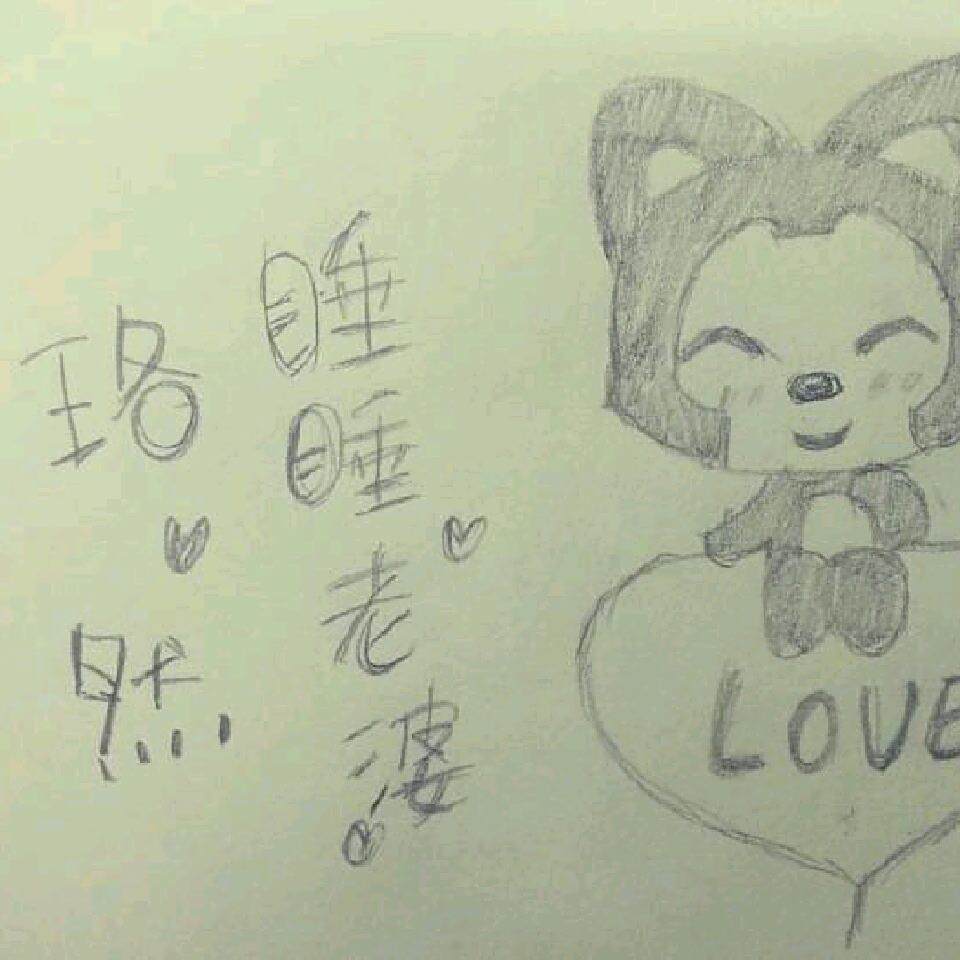 睡睡老婆
珞
然
LOVE